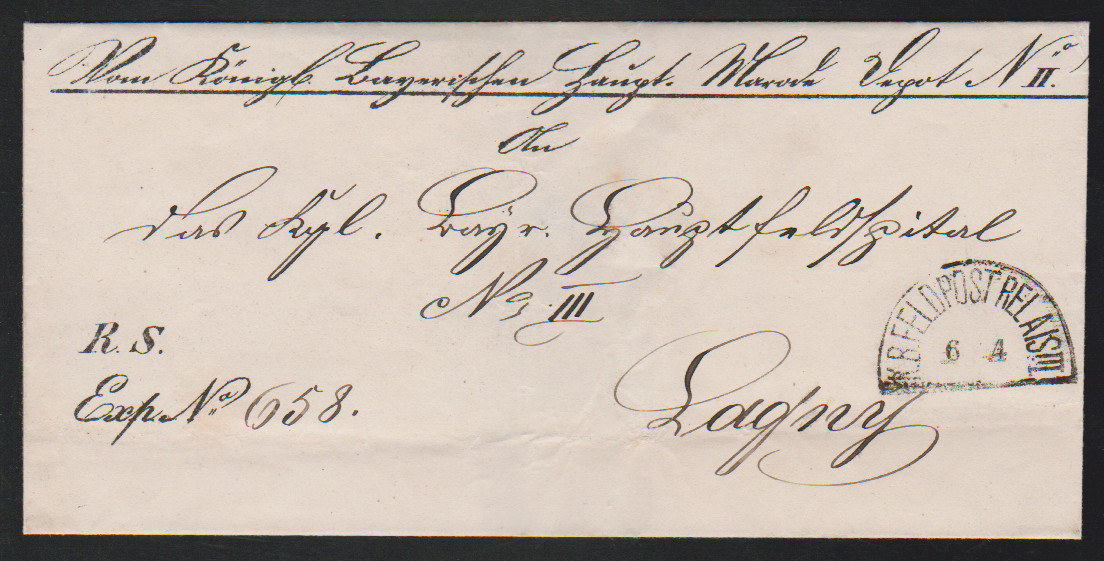 Vom Königl. Bayerischen Haupt. Marode Depot No II.
An
das Kgl. Bayr. Hauptfeldspital
No. III
R. S.
Exp. No 658.
Lagny
K.B. FELDPOST RELAIS III
6 4